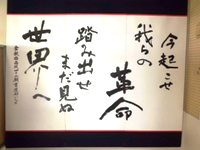 今起こせ
我らの
革命
踏み出せ
まだ見ぬ
世界へ